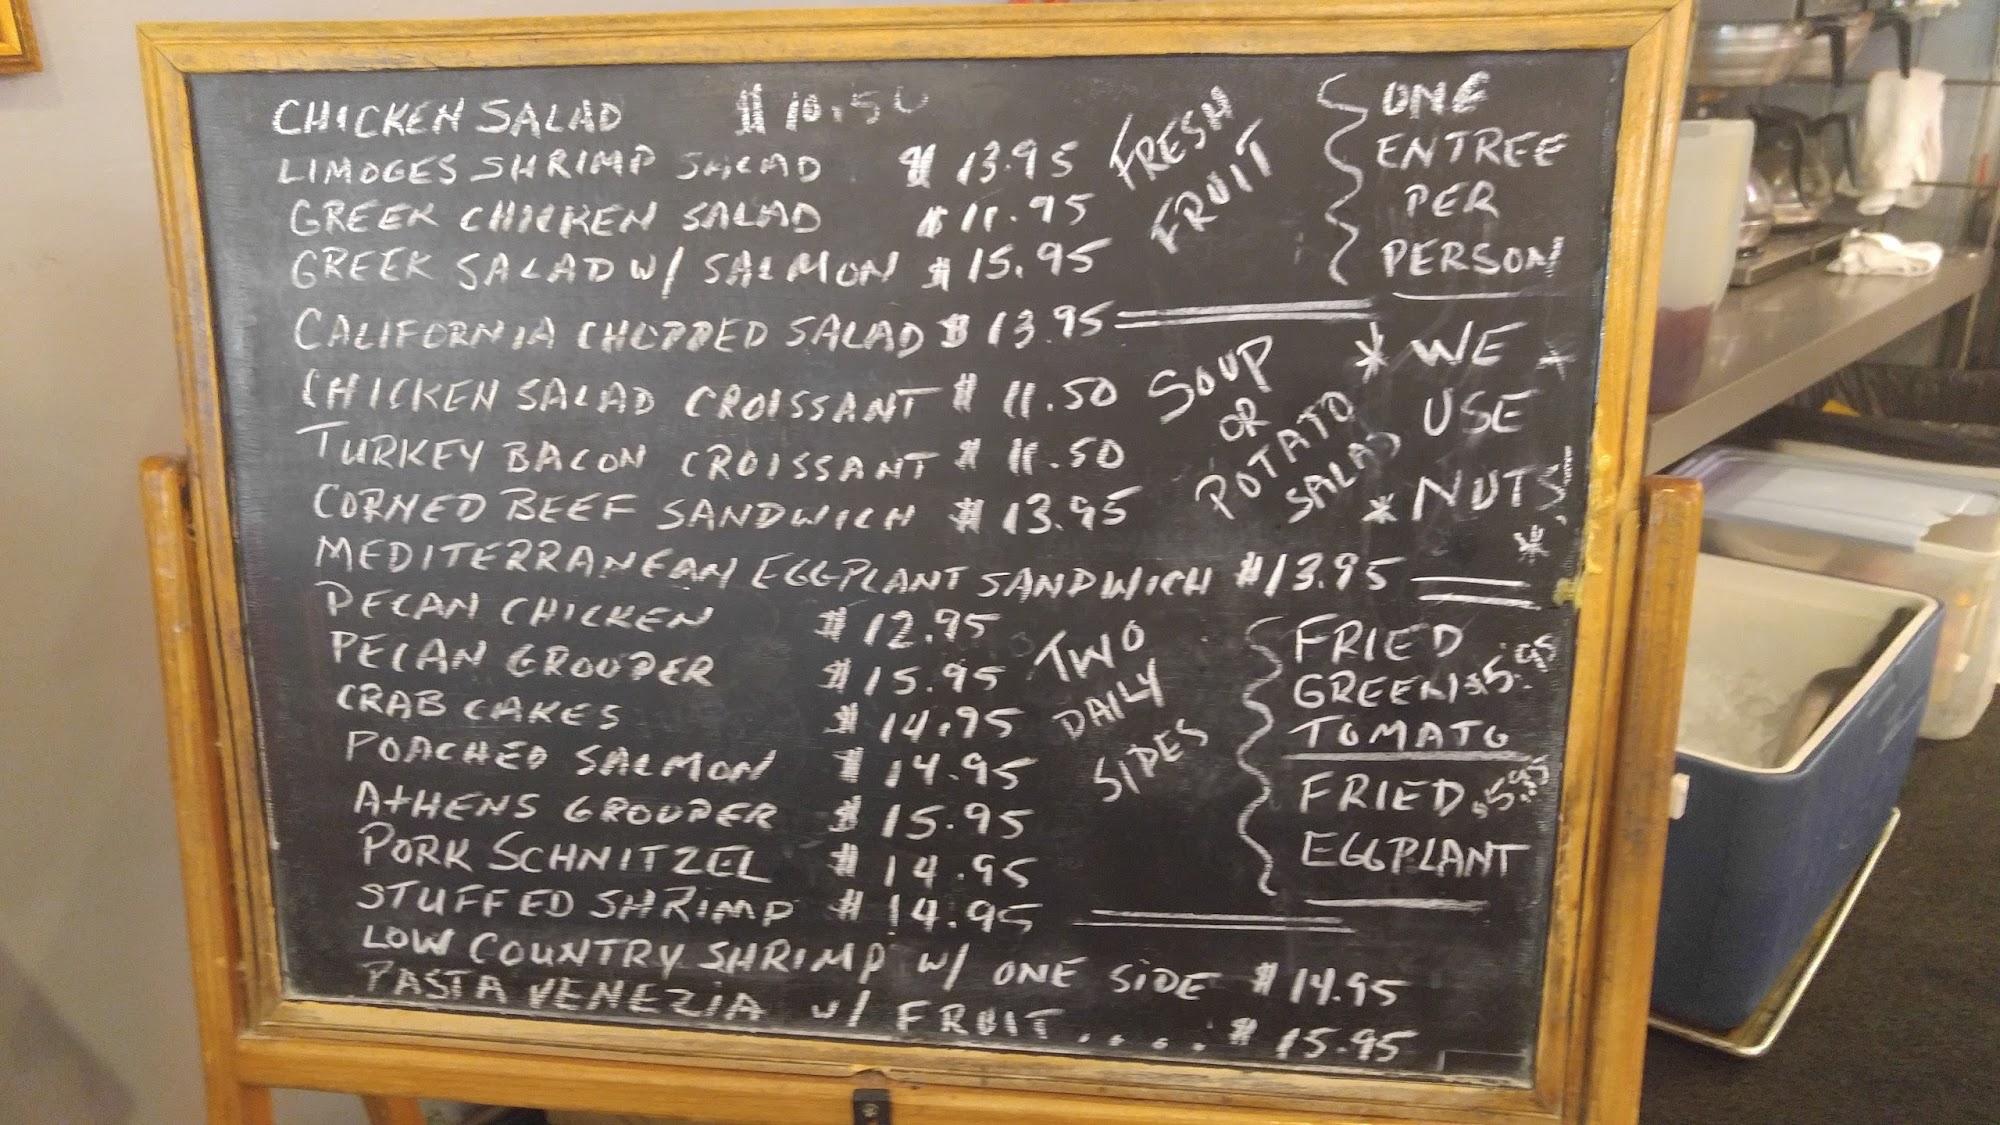 CHICKEN SALAD $10.50
LIMOGES SHRIMP SALAD $13.95
GREEK CHICKEN SALAD $11.95
GREEK SALAD W/ SALMON $15.95
CALIFORNIA CHOPPED SALAD $13.95
FRESH
FRUIT
ONE
ENTREE
PER
PERSON
CHICKEN SALAD CROISSANT $11.50
TURKEY BACON CROISSANT $11.50
CORNED BEEF SANDWICH $13.95
MEDITERRANEAN EGGPLANT SANDWICH $13.95
SOUP
OR
POTATO
SALAD
* WE *
USE
* NUTS *
PECAN CHICKEN $12.95
PECAN GROUPER $15.95
CRAB CAKES $14.95
POACHED SALMON $14.95
ATHENS GROUPER $15.95
PORK SCHNITZEL $14.95
STUFFED SHRIMP $14.95
TWO
DAILY
SIDES
FRIED
GREEN $5.95
TOMATO
FRIED $5.95
EGGPLANT
LOW COUNTRY SHRIMP W/ ONE SIDE $14.95
PASTA VENEZIA W/ FRUIT.....$15.95